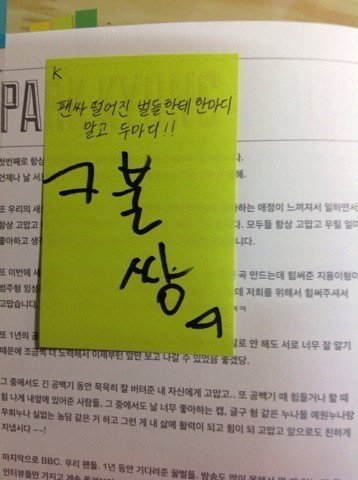 K
팬싸 떨어진 벌들한테 한마디
말고 두마디!!
불
쌍
PA
첫번째로 항상
다.
언제나 날 서
해.
또 우리의 새
하는 애정이 느껴져서 일하면서
항상 고맙고
다. 모두들 항상 고맙고 우릴 얼마
좋아하고 생각
니다.
또 이번에 새
곡 만드는데 힘써준 지용이형이
범주형 임성
데 저희를 위해서 힘써주셔서
고맙습니다.
또 1년의 공
말로 안 해도 서로 너무 잘 알기
때문에 조금씩 더 노력해서 이제부턴 앞만 보고 나갈 수 있었음 좋겠당.
그 중에서도 긴 공백기 동안 묵묵히 잘 버텨준 내 자신에게 고맙고.. 또 공백기 때 힘들거나 할 때
힘 나게 내옆에 있어준 사람들, 그 중에서도 날 너무 좋아하는 캡, 글구 형 같은 누나들 예원누나랑
우희누나 실없는 농담 같은 거 하고 그런 게 내 삶에 활력이 되고 힘이 되 고맙고 앞으로도 친하게
지냅시다 ~~!
마지막으로 BBC. 우리 팬들. 1년 동안 기다려준 꿀벌들.